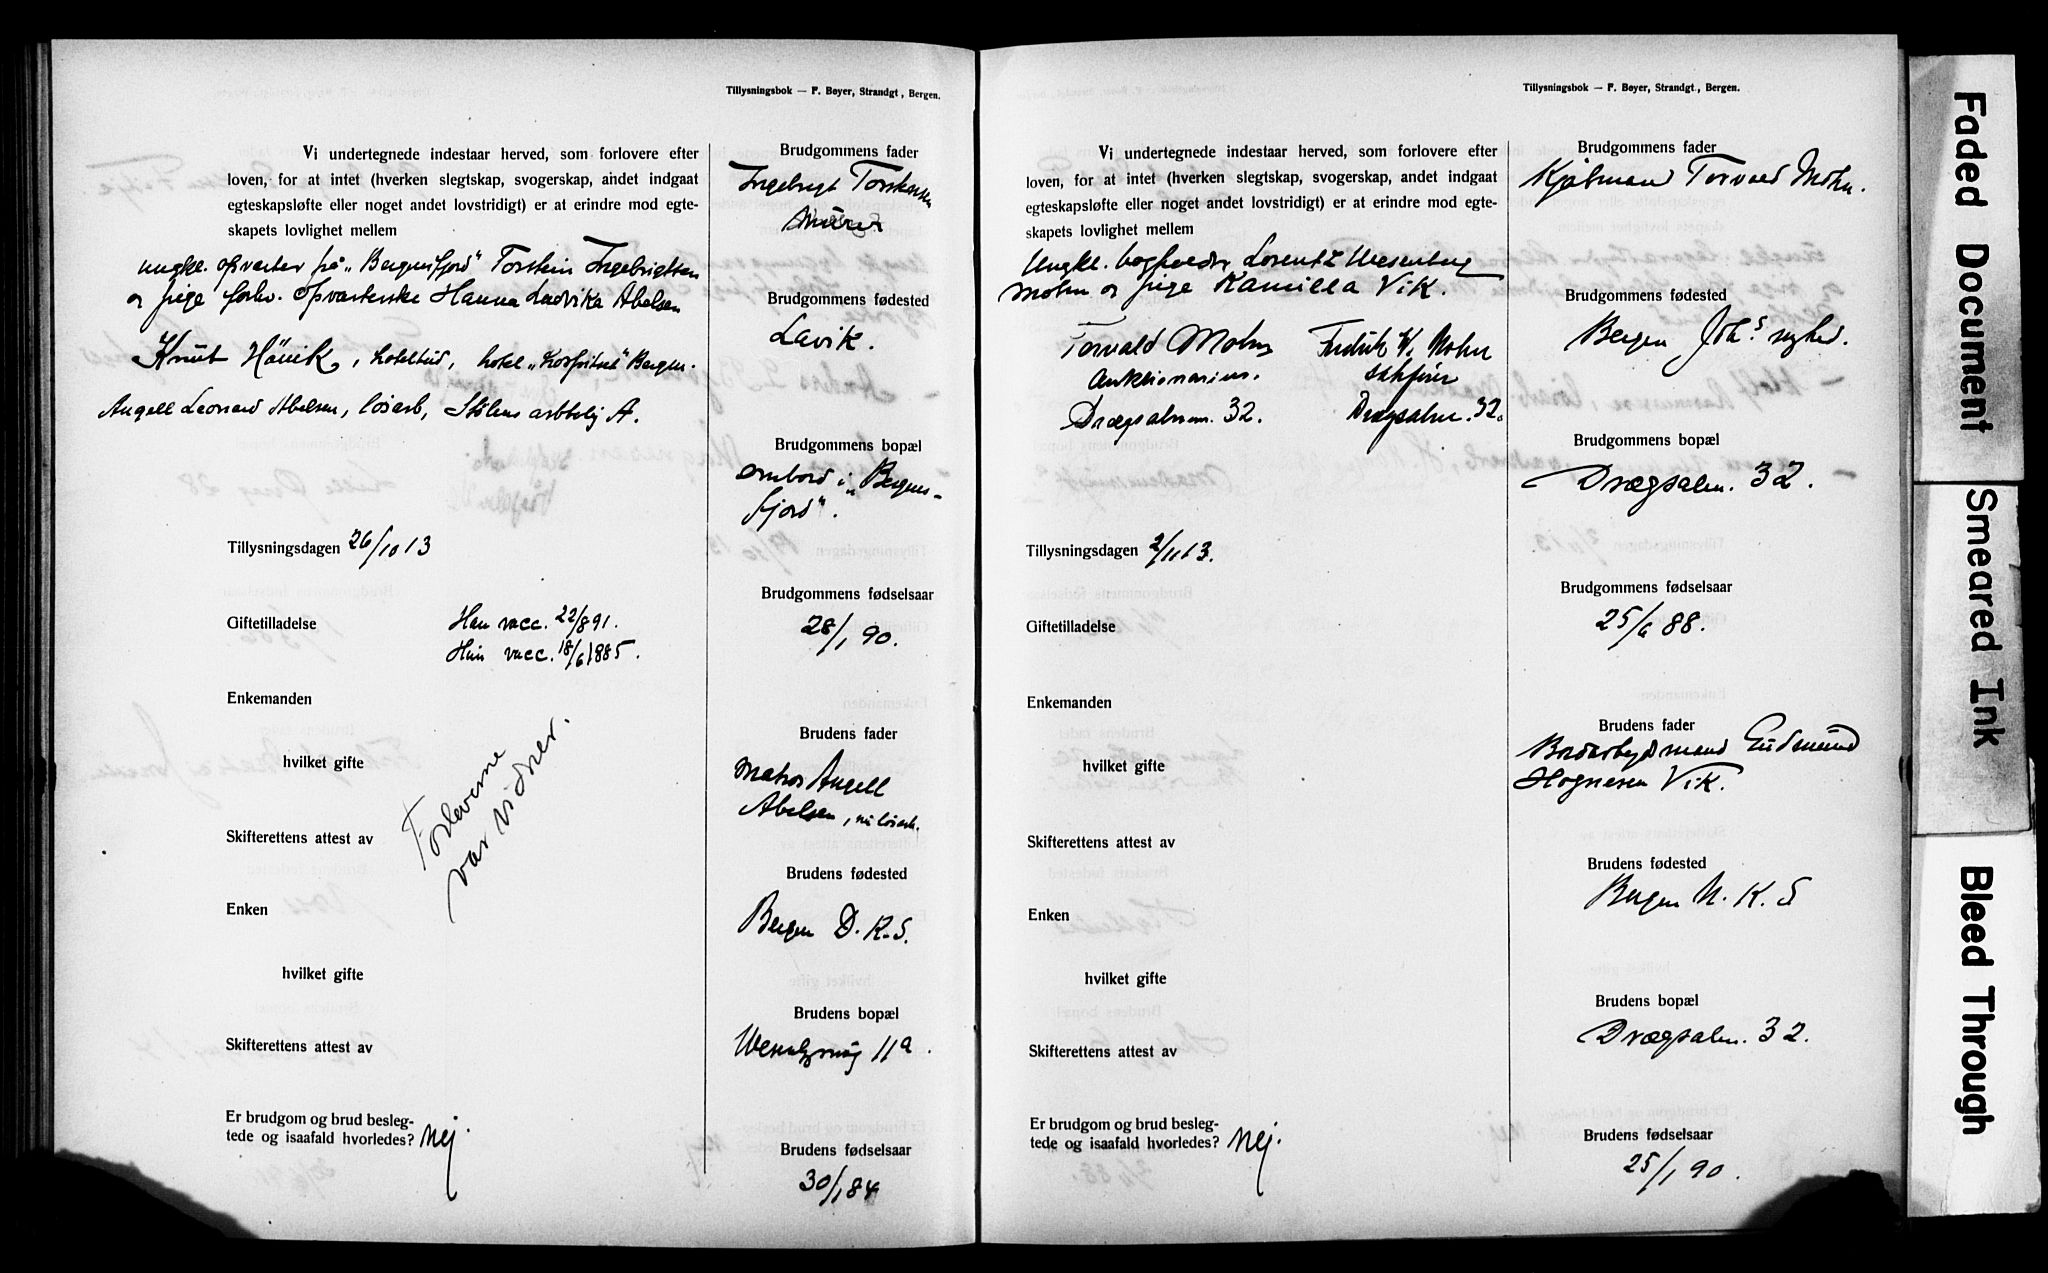 Tillysningsbok — F. Beyer, Strandgt., Bergen.
Vi undertegnede indestaar herved, som forlovere efter
loven, for at intet (hverken slegtskap, svogerskap, andet indgaat
egteskapsløfte eller noget andet lovstridigt) er at erindre mod egte-
skapets lovlighet mellem
ungkl. opvarter på „Bergensfjord" Torstein Ingebrigtsen
og pige forhv. opvarterske Hanna Ludvika Abelsen
Knut , hotel Bergen.
Angell Leonard Abelsen, løsarb, Stølens arbbolig A.
Tillysningsdagen 26/10 13
Giftetilladelse
Han vacc. 22/8 91.
Hun vacc. 18/6 1885.
Enkemanden
hvilket gifte
Forloverne
var vidner.
Skifterettens attest av
Enken
hvilket gifte
Skifterettens attest av
Er brudgom og brud besleg-
tede og isaafald hvorledes? Nej.
Brudgommens fader
Ingebrigt Torstensen
Brudgommens fødested
Lavik.
Brudgommens bopæl
ombord i „Bergens-
fjord".
Brudgommens fødselsaar
28/1 90.
Brudens fader
Matros Angell
Abelsen, nu løsarb.
Brudens fødested
Bergen D. K. S.
Brudens bopæl
11a.
Brudens fødselsaar
30/1 84
Tillysningsbok — F. Beyer, Strandgt., Bergen.
Vi undertegnede indestaar herved, som forlovere efter
loven, for at intet (hverken slegtskap, svogerskap, andet indgaat
egteskapsløfte eller noget andet lovstridigt) er at erindre mod egte-
skapets lovlighet mellem
Ungkl. bogholder Lorentz Wesenberg
Mohn og pige Kamilla Vik.
Torvald Mohn Fredrik W. Mohn
Auktionarius.
Drægsalmen. 32. Drægsalm. 32.
Tillysningsdagen 2/11 13.
Giftetilladelse
Enkemanden
hvilket gifte
Skifterettens attest av
Enken
hvilket gifte
Skifterettens attest av
Er brudgom og brud besleg-
tede og isaafald hvorledes? Nej.
Brudgommens fader
Kjøbmand Torvald Mohn.
Brudgommens fødested
Bergen Joh.s sogn.
Brudgommens bopæl
Drægsalm. 32.
Brudgommens fødselsaar
25/6 88.
Brudens fader
Gudmund
Hognesen Vik.
Brudens fødested
Bergen N. K. S
Brudens bopæl
Drægsalm. 32.
Brudens fødselsaar
25/1 90.
Faded Document
Smeared Ink
Bleed Through